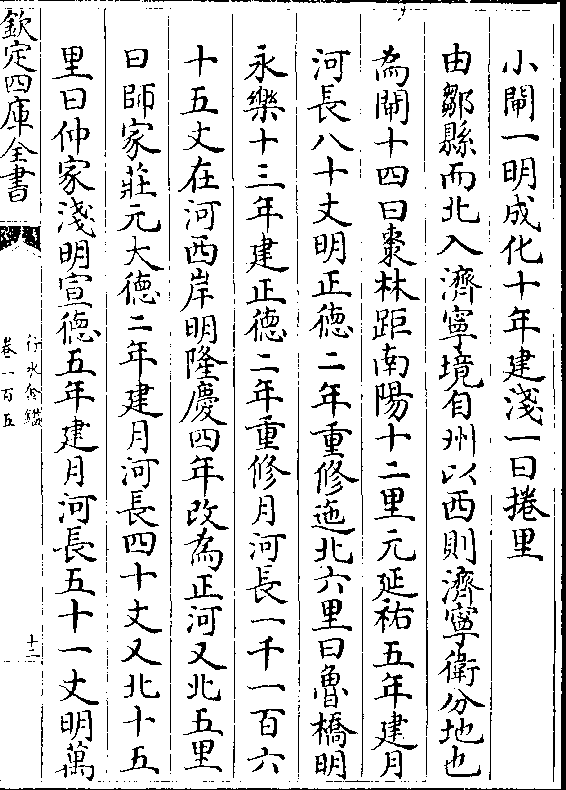 小閘一明成化十年建淺一曰捲里
由鄒縣而北入濟寧境自州以西則濟寧衛分地也
為閘十四曰棗林距南陽十二里元延祐五年建月
河長八十丈明正德二年重修迤北六里曰魯橋明
永樂十三年建正德二年重修月河長一千一百六
十五丈在河西岸明隆慶四年改為正河又北五里
曰師家莊元大德二年建月河長四十丈又北十五
里曰仲家淺明宣德五年建月河長五十一丈明萬
欽定四庫全書
行水金鑑
卷一百五
十二